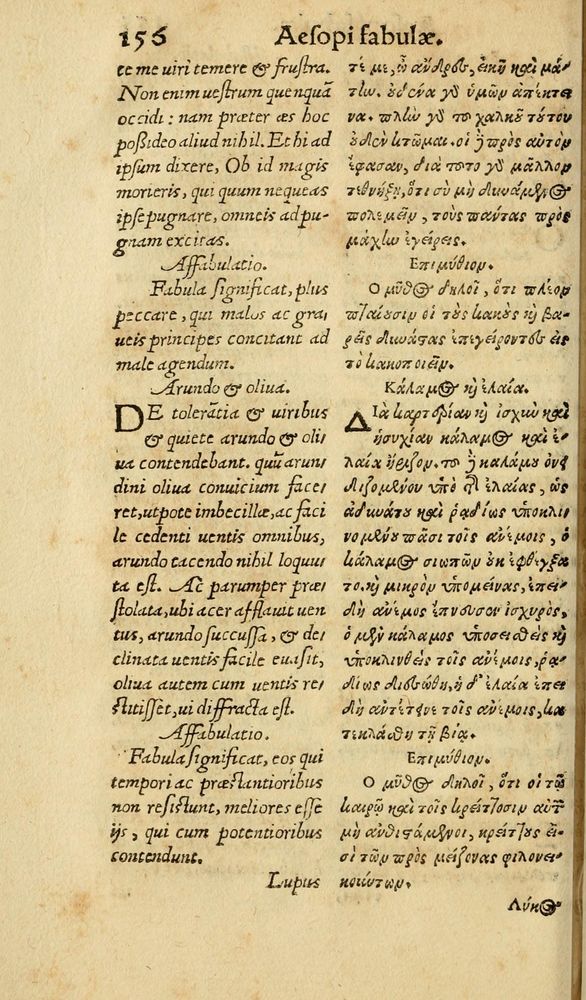 156 Aesopi fabulæ.
te me uiri temere & frustra.
Non enim uestrum quenquã
occidi: nam præter æs hoc
poßideo aliud nihil. Et hi ad
ipsum dixere, Ob id magis
morieris, qui quum nequeas
ipse pugnare, omneis ad pu-
gnam excitas.
Affabulatio.
Fabula significat, plus
peccare, qui malos ac gra/
ueis principes concitant ad
male agendum.
Arundo & oliua.
DE tolerãtia & uiribus
& quiete arundo & oli/
ua contendebant. quũ arun/
dini oliua conuicium face/
ret, utpote imbecillæ, ac faci
le cedenti uentis omnibus,
arundo tacendo nihil loquu/
ta est. Ac parumper præ/
stolata, ubi acer afflauit uen
tus, arundo succussa, & de/
clinata uentis facile euasit,
oliua autem cum uentis re/
stitisset, ui diffracta est.
Affabulatio.
Fabula significat, eos qui
tempori ac præstantioribus
non resistunt, meliores esse
ijs, qui cum potentioribus
contendunt.
Lupus
τέ με, ὦ ἄνδρες, εἰκῆ καὶ μά-
την. οὐδένα γὸ ὑμῶν ἀπέκτει
να. πλὴν γὸ το χαλκοῦ τούτου
οὐδὲν κτῶμαι. οἱ ἢ πρὸς αὐτὸν
ἔφασαν, διὰ τοτο γὸ μᾶλλον
τεθνήξῃ, ὅτι σὺ μὴ δυνάμενος
πολεμεῖν, τοὺς πάντας πρὸς
μάχην ἐγείρεις.
Ἐπιμύθιον.
Ὁ μῦθος δηλοῖ, ὅτι πλέον
πταίουσιν οἱ τοὺς κακοὺς κỳ βα-
ρεῖς δυνάστας ἐπεγείροντες εἰς
τὸ κακοποιεῖν.
Κάλαμος κỳ ἐλαία.
Διὰ καρτερίαν κỳ ἰσχὺν καὶ
ἡσυχίαν κάλαμος καὶ ἐ-
λαία ἤριζον. το ἢ καλάμου ὀνει
διζομένου ὑπὸ τῆς ἐλαίας, ὡς
ἀδυνάτου καὶ ῥαδίως ὑποκλι-
νομένου πᾶσι τοῖς ἀνέμοις, ὁ
κάλαμος σιωπῶν οὐκ ἐφθέγξα
το. κỳ μικρὸν ὑπομείνας, ἐπει-
δὴ ἄνεμος ἔπνευσεν ἰσχυρὸς,
ὁ μὲν κάλαμος ὑποσεισθεὶς κỳ
ὑποκλινθεὶς τοῖς ἀνέμοις, ῥα-
δίως διεσώθη, ἡ δ' ἐλαία ἐπει
δὴ ἀντέτεινε τοῖς ἀνέμοις, κα
τεκλάσθη τῇ βίᾳ.
Ἐπιμύθιον.
Ὁ μῦθος δηλοῖ, ὅτι οἱ τῷ
καιρῷ καὶ τοῖς κρείττοσιν αὐτῶν
μὴ ἀνθιστάμενοι, κρείττους εἰ-
σὶ τῶν πρὸς μείζονας φιλονει-
κούντων.
Λύκος